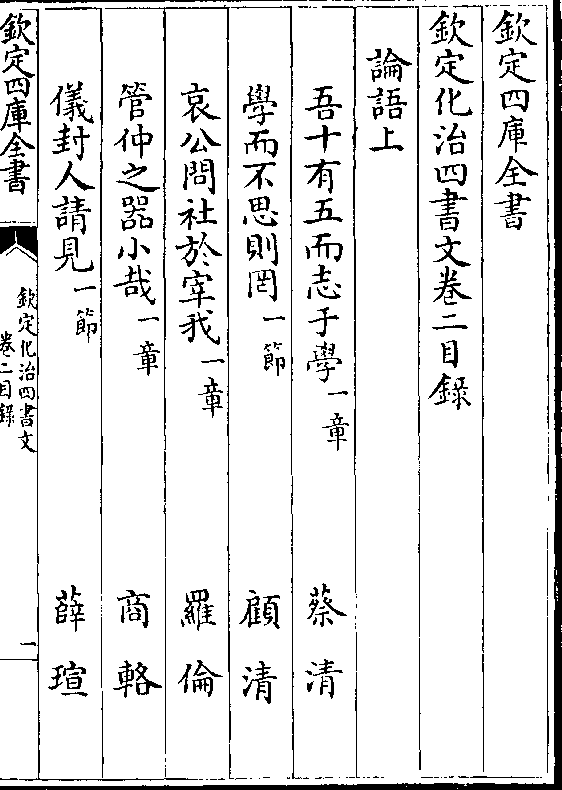 欽定四庫全書
欽定化治四書文卷二目錄
論語上
吾十有五而志于學一章 蔡清
學而不思則罔一節 顧清
哀公問社於宰我一章 羅倫
管仲之器小哉一章 商輅
儀封人請見一節 薛瑄
欽定四庫全書
欽定化治四書文
卷二目錄
一